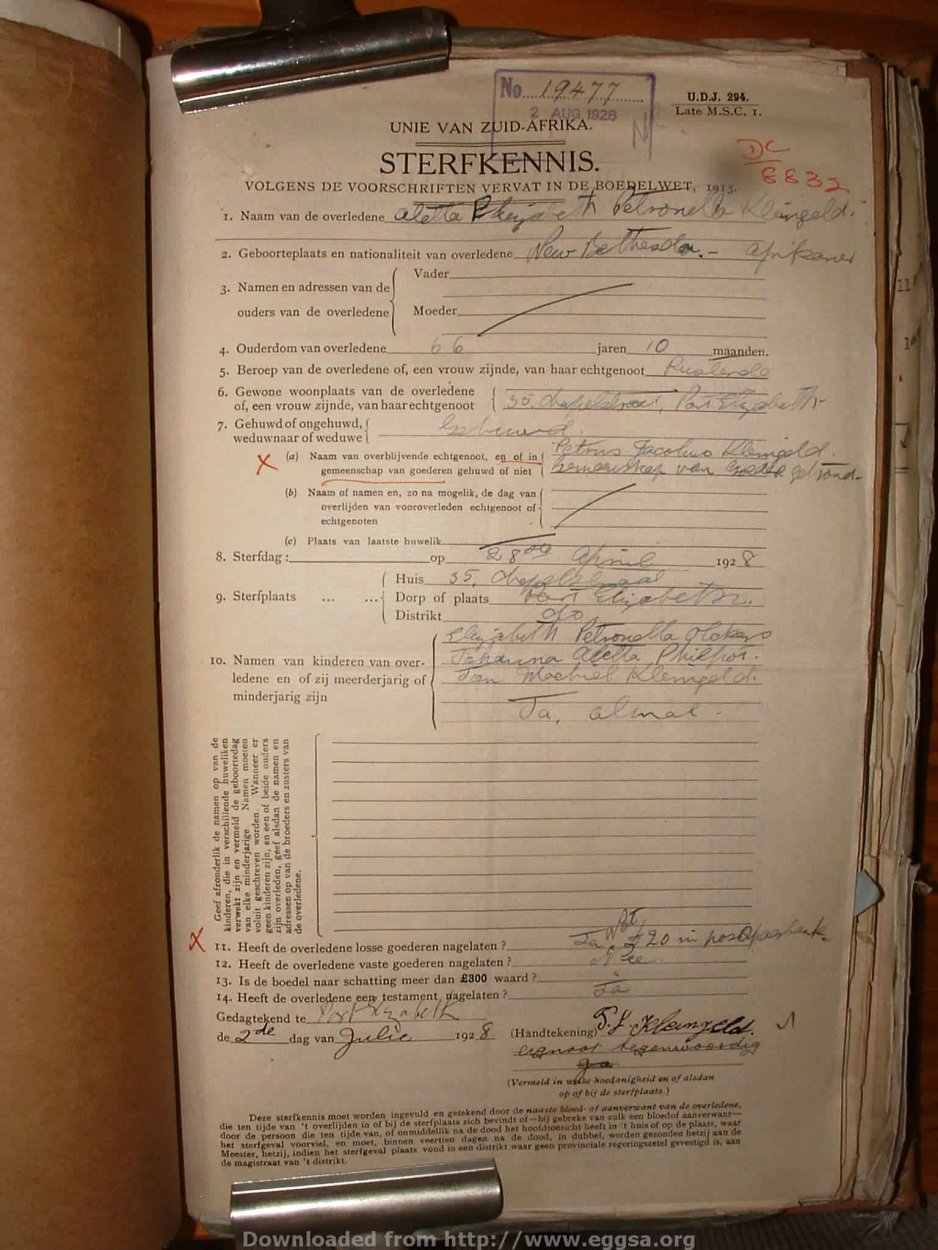 No. 19477
2 AUG 1928
U.D.J. 294.
Late M.S.C. 1.
UNIE VAN ZUID-AFRIKA.
DC
8832
STERFKENNIS.
VOLGENS DE VOORSCHRIFTEN VERVAT IN DE BOEDELWET, 1913.
1. Naam van de overledene Aletta Elizabeth Petronella Kleingeld.
2. Geboorteplaats en nationaliteit van overledene New Bethesda. - Afrikaner
3. Namen en adressen van de ouders van de overledene
Vader
Moeder
4. Ouderdom van overledene 66 jaren 10 maanden.
5. Beroep van de overledene of, een vrouw zijnde, van haar echtgenoot
6. Gewone woonplaats van de overledene
of, een vrouw zijnde, van haar echtgenoot 35, Chapelstraat, Port Elizabeth
7. Gehuwd of ongehuwd,
weduwnaar of weduwe
X (a) Naam van overblijvende echtgenoot, en of in Petrus Jacobus Kleingeld.
gemeenschap van goederen gehuwd of niet Gemeenskap van Goedere
(b) Naam of namen en, zo na mogelik, de dag van
overlijden van vooroverleden echtgenoot of
echtgenoten
(c) Plaats van laatste huwelik
8. Sterfdag: op 28ste April 1928
9. Sterfplaats ... ...
Huis 35, Chapelstraat
Dorp of plaats Port Elizabeth.
Distrikt do
10. Namen van kinderen van over-
ledene en of zij meerderjarig of
minderjarig zijn
Elizabeth Petronella
Johanna Aletta Philpot.
Jan Kleingeld.
Ja, almal.
Geef afzonderlik de namen op van de
kinderen, die in verschillende huweliken
verwekt zijn en vermeld de geboortedag
van elke minderjarige. Namen moeten
voluit geschreven worden. Wanneer er
geen kinderen zijn, en een of beide ouders
zijn overleden, geef alsdan de namen en
adressen op van de broeders en zusters van
de overledene.
X 11. Heeft de overledene losse goederen nagelaten? Ja, £20 in pos spaarbank.
12. Heeft de overledene vaste goederen nagelaten? Nee.
13. Is de boedel naar schatting meer dan £300 waard?
14. Heeft de overledene een testament nagelaten? Ja
Gedagtekend te Port Elizabeth
de 2de dag van Julie 1928 (Handtekening) P.J. Kleingeld.
eggenoot tegenwoordig
ja
(Vermeld in welke hoedanigheid en of alsdan
op of bij de sterfplaats.)
Deze sterfkennis moet worden ingevuld en getekend door de naaste bloed- of aanverwant van de overledene,
die ten tijde van 't overlijden in of bij de sterfplaats zich bevindt of—bij gebreke van zulk een bloedof aanverwant—
door de persoon die ten tijde van, of onmiddellik na de dood het hoofdtoezicht heeft in 't huis of op de plaats, waar
het sterfgeval voorviel, en moet, binnen veertien dagen na de dood, in dubbel, worden gezonden hetzij aan de
Meester, hetzij, indien het sterfgeval plaats vond in een distrikt waar geen provinciale regeringszetel gevestigd is, aan
de magistraat van 't distrikt.
Downloaded from http://www.eggsa.org